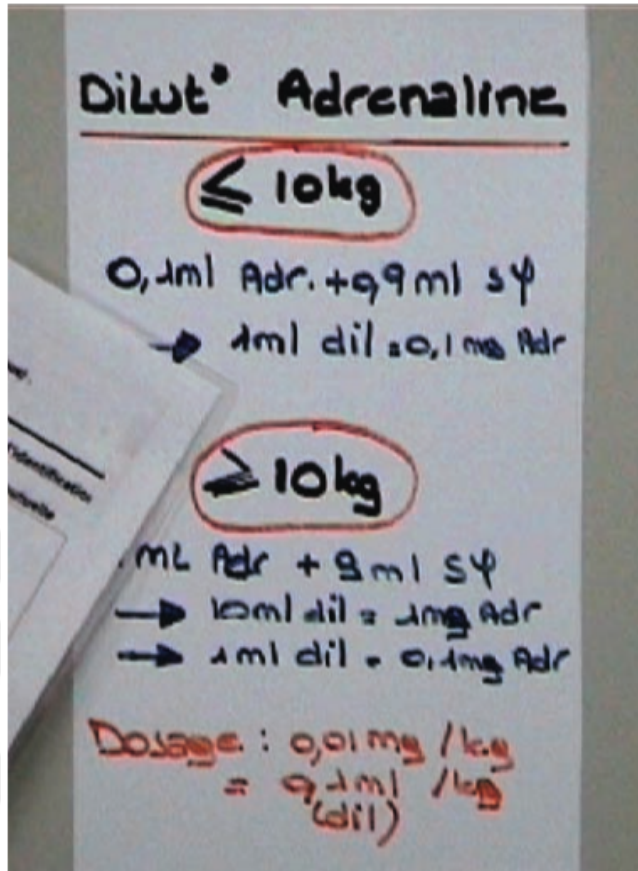 Dilut° Adrenaline
≤ 10kg
0,1ml Adr. + 0,9ml sφ
→ 1ml dil = 0,1 mg Adr
d'identification
≥ 10kg
ml Adr + 9ml sφ
→ 10ml dil = 1mg Adr
→ 1ml dil = 0,1mg Adr
Dosage : 0,01mg /kg
= 0,1ml /kg
(dil)